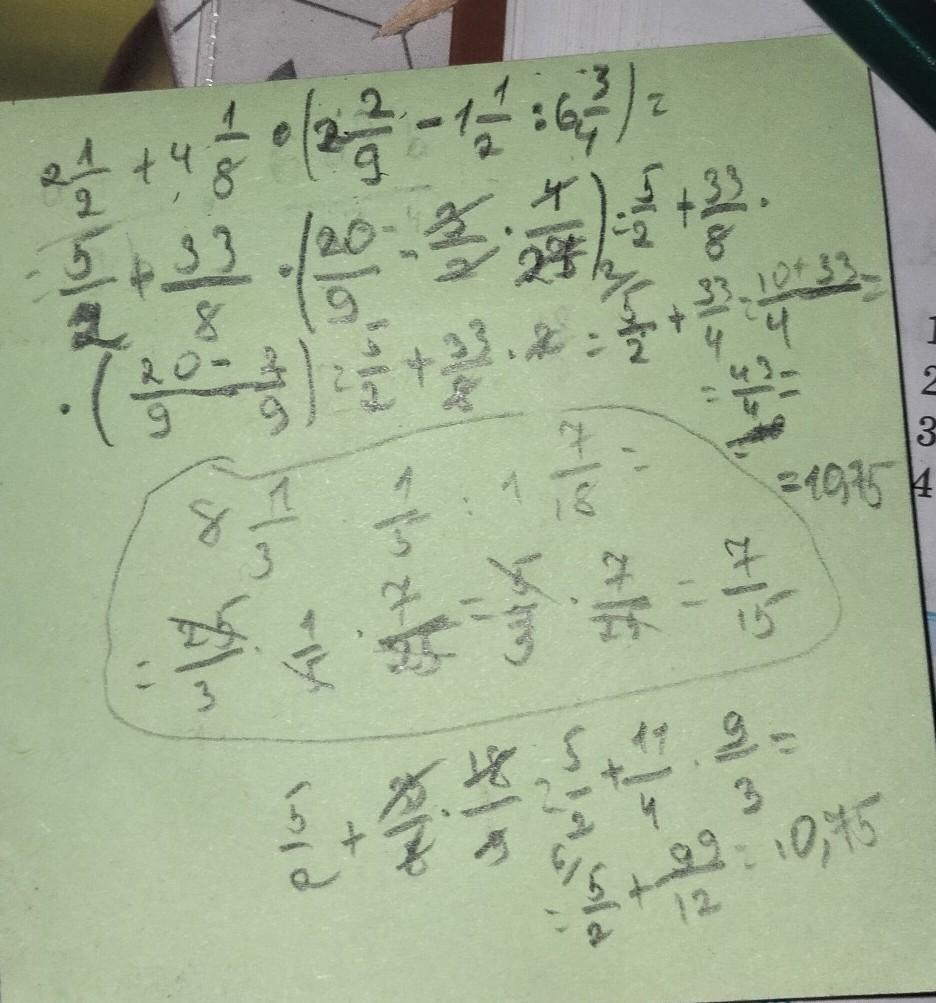 2 1/2 + 4 1/8 • (2 2/9 - 1 1/2 : 6 3/4) =
= 5/2 + 33/8 • (20/9 - 3/2 • 4/27) = 5/2 + 33/8 •
• (20/9 - 2/9) = 5/2 + 33/8 • 2 = 5/2 + 33/4 = 10+33/4 =
= 43/4 =
= 10,75
8 1/3 • 1/5 : 1 7/18 =
= 25/3 • 1/5 • 7/25 = 5/3 • 7/25 = 7/15
5/2 + 33/8 • 18/9 = 5/2 + 11/4 • 9/3 =
= 5/2 + 99/12 = 10,75
1
2
3
4